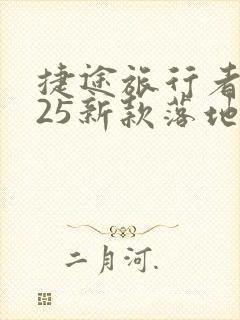 捷途旅行者
25新款落地
二月河.